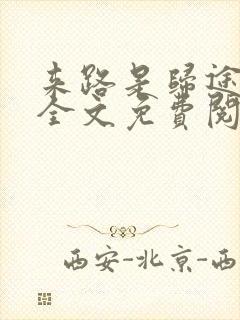 来路是歸途
全文免費閱
西安-北京-西